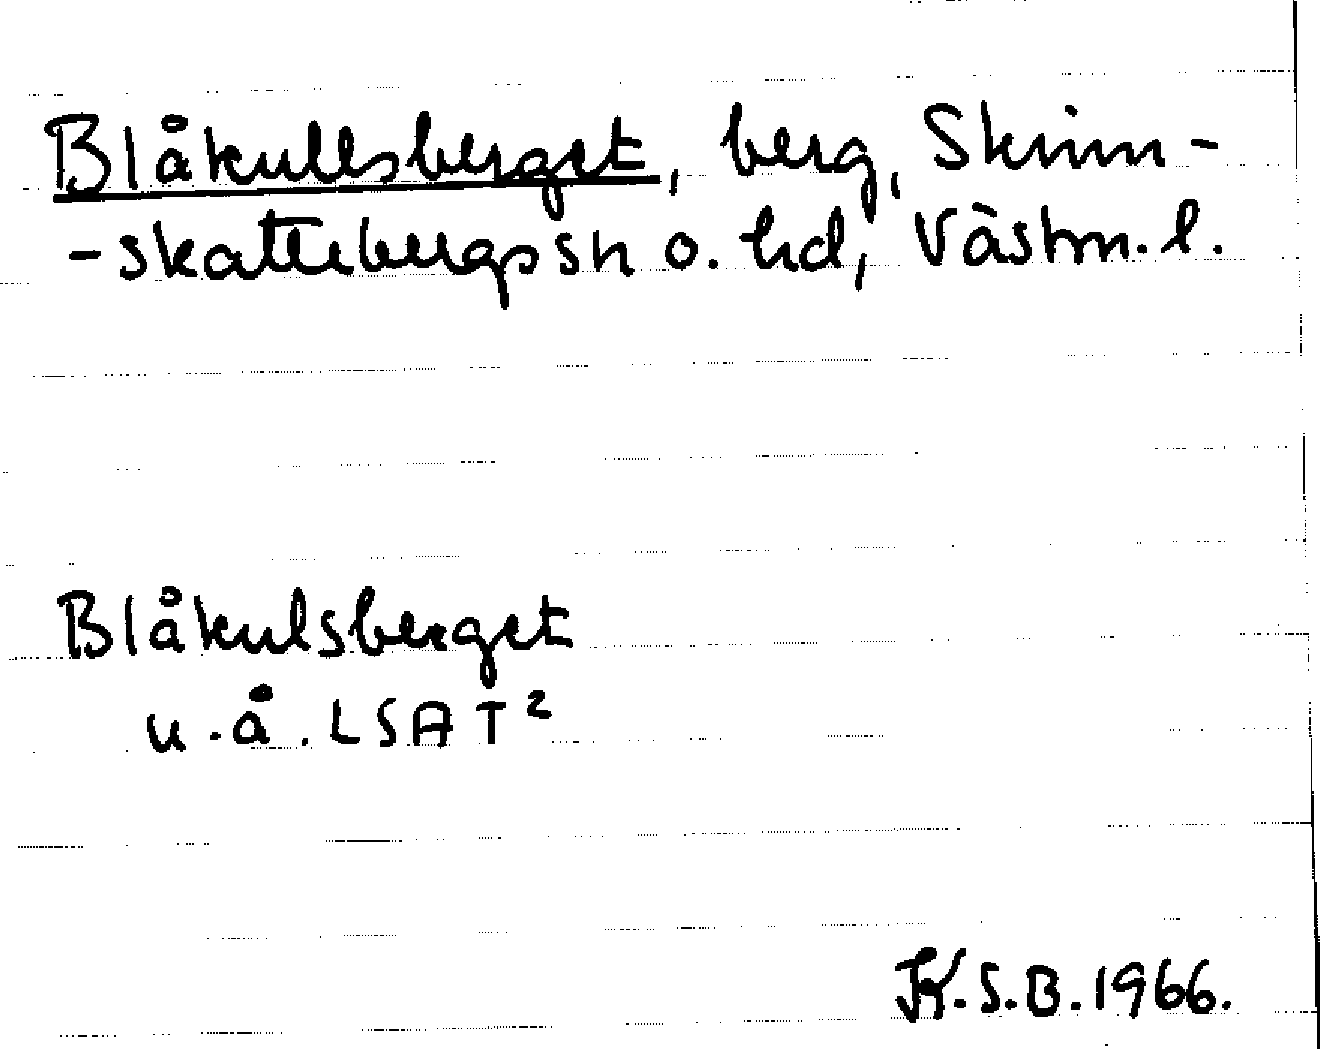 Blåkullsberget, berg, Skinn-
-skattebergs sn o. hd, Västm. l.
Blåkulsberget
u.å. LSAT²
K.S.B. 1966.